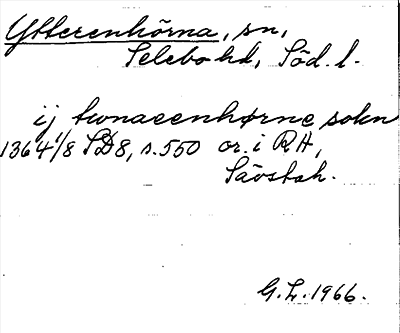 Ytterenhörna, sn,
Selebo hd, Söd. l.
ij twnaeenhørne sokn
1364 1/8 SD8, s. 550 or. i RA,
Sävstah.
G. L. 1966.